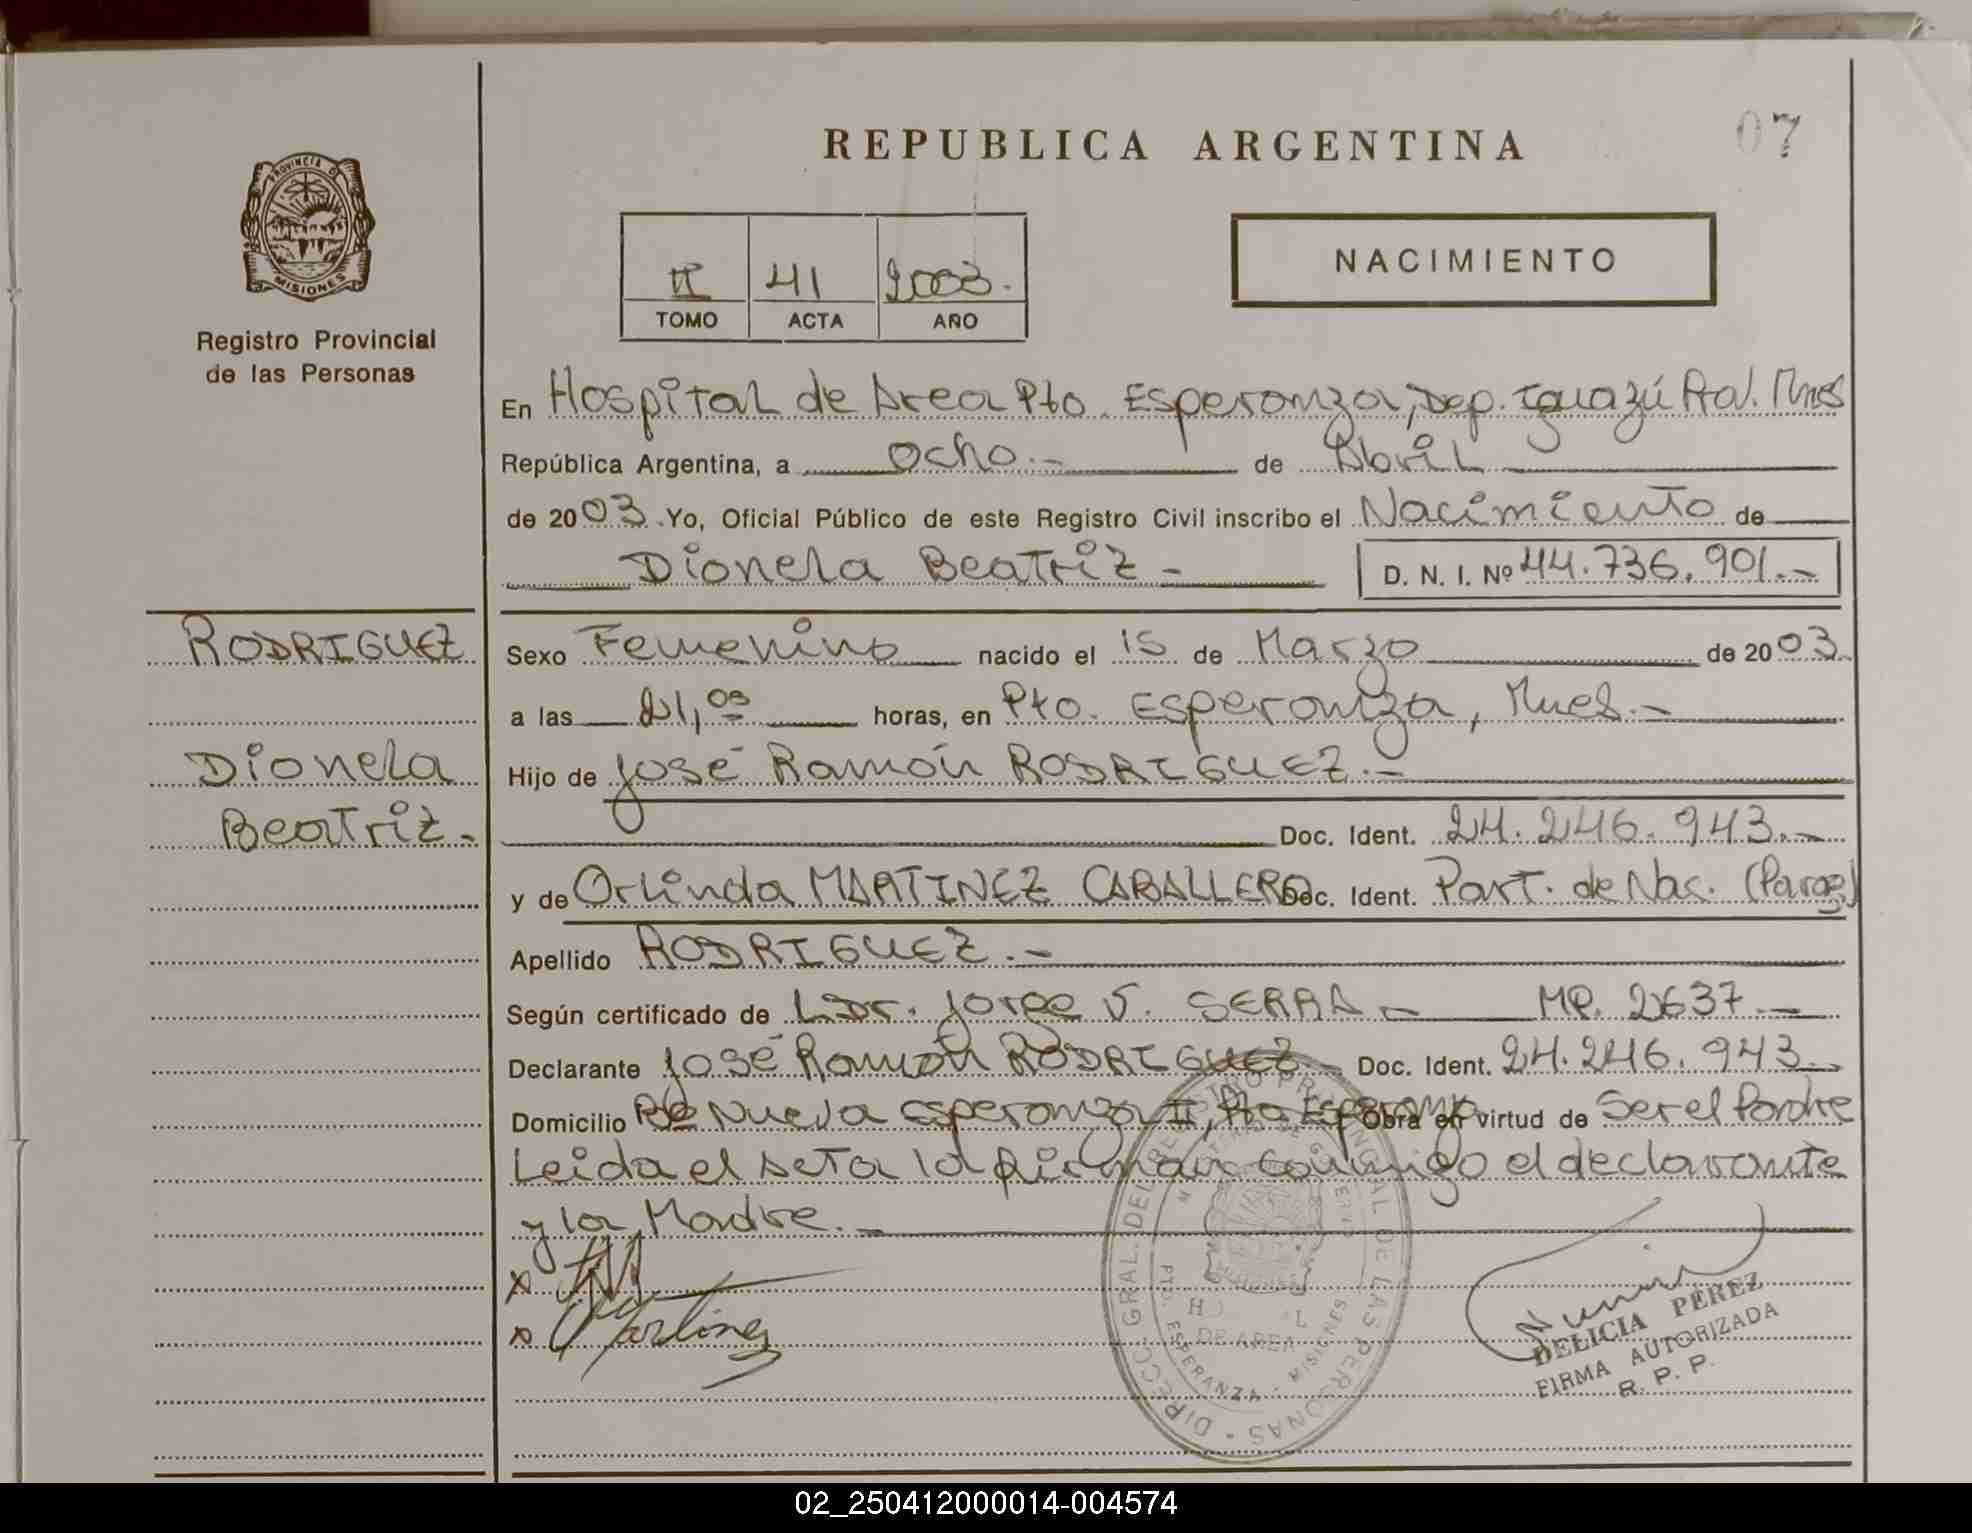 REPUBLICA ARGENTINA
07
PROVINCIA D
MISIONES
Registro Provincial
de las Personas
II 41 2003.
TOMO ACTA AÑO
NACIMIENTO
En Hospital de Area Pto. Esperanza, Dep. Iguazú Mnes
República Argentina, a ocho.- de Abril
de 2003. Yo, Oficial Público de este Registro Civil inscribo el Nacimiento de
Dionela Beatriz - D. N. I. Nº 44.736.901.-
RODRIGUEZ
Sexo Femenino nacido el 15 de Marzo de 2003.
a las 21,09 horas, en Pto. Esperanza, Mnes.-
Dionela
Hijo de José Ramón RODRIGUEZ.-
Beatriz.-
Doc. Ident. 24.246.943.-
y de Orlinda MARTINEZ CABALLERO Doc. Ident. Part. de Nac. (Parag)
Apellido RODRIGUEZ.-
Según certificado de Dr. Jorge V. SERRA - MP. 2637 -
Declarante José Ramón RODRIGUEZ - Doc. Ident. 24.246.943.-
Domicilio Bº Nueva Esperanza II, Pto Esperanza Obra en virtud de Ser el Padre
Leida el Acta la firman conmigo el declarante
y la Madre.-
x
x Martinez
DIRECC. GRAL. DEL REGISTRO PROVINCIAL DE LAS PERSONAS
DE AREA
PTO. ESPERANZA - MISIONES
DELICIA PEREZ
FIRMA AUTORIZADA
R. P. P.
02_250412000014-004574